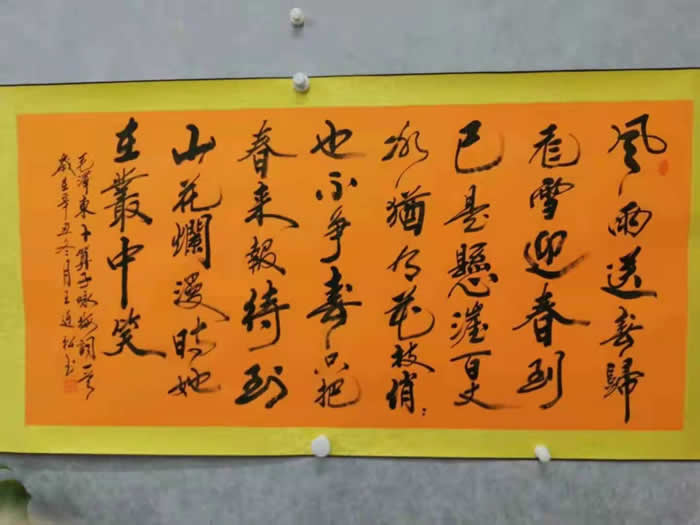 风雨送春歸
飛雪迎春到
已是懸涯百丈
冰猶有花枝俏：
也不争春只把
春来報待到
山花爛漫时她
在叢中笑
毛澤東卜算子咏梅詞一首
歲在辛丑冬月王道书